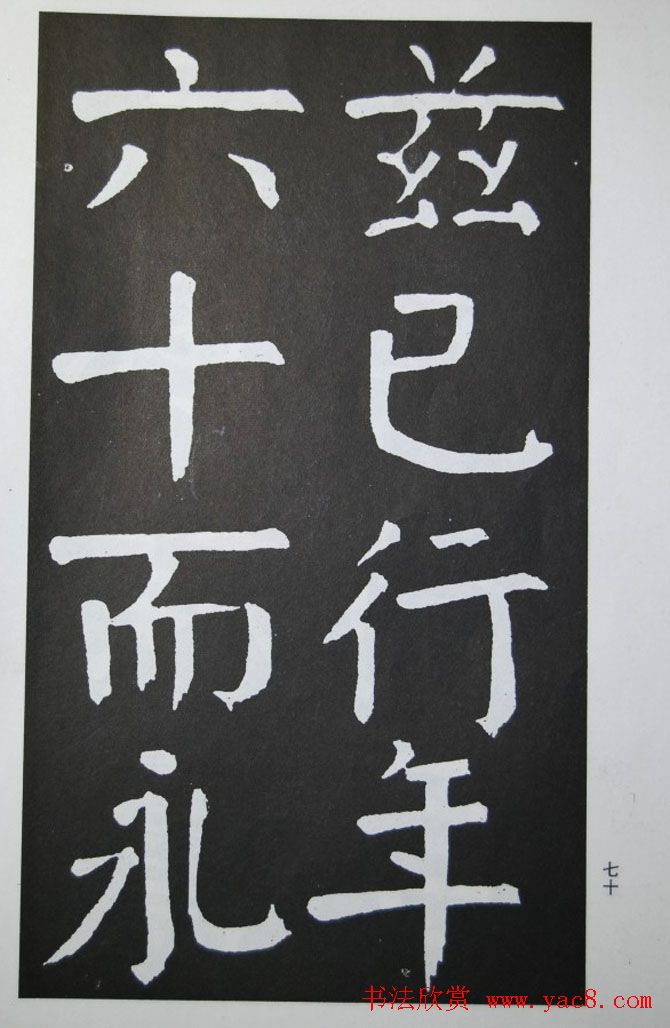 兹已行年
六十而永
七十
书法欣赏 www.yac8.com